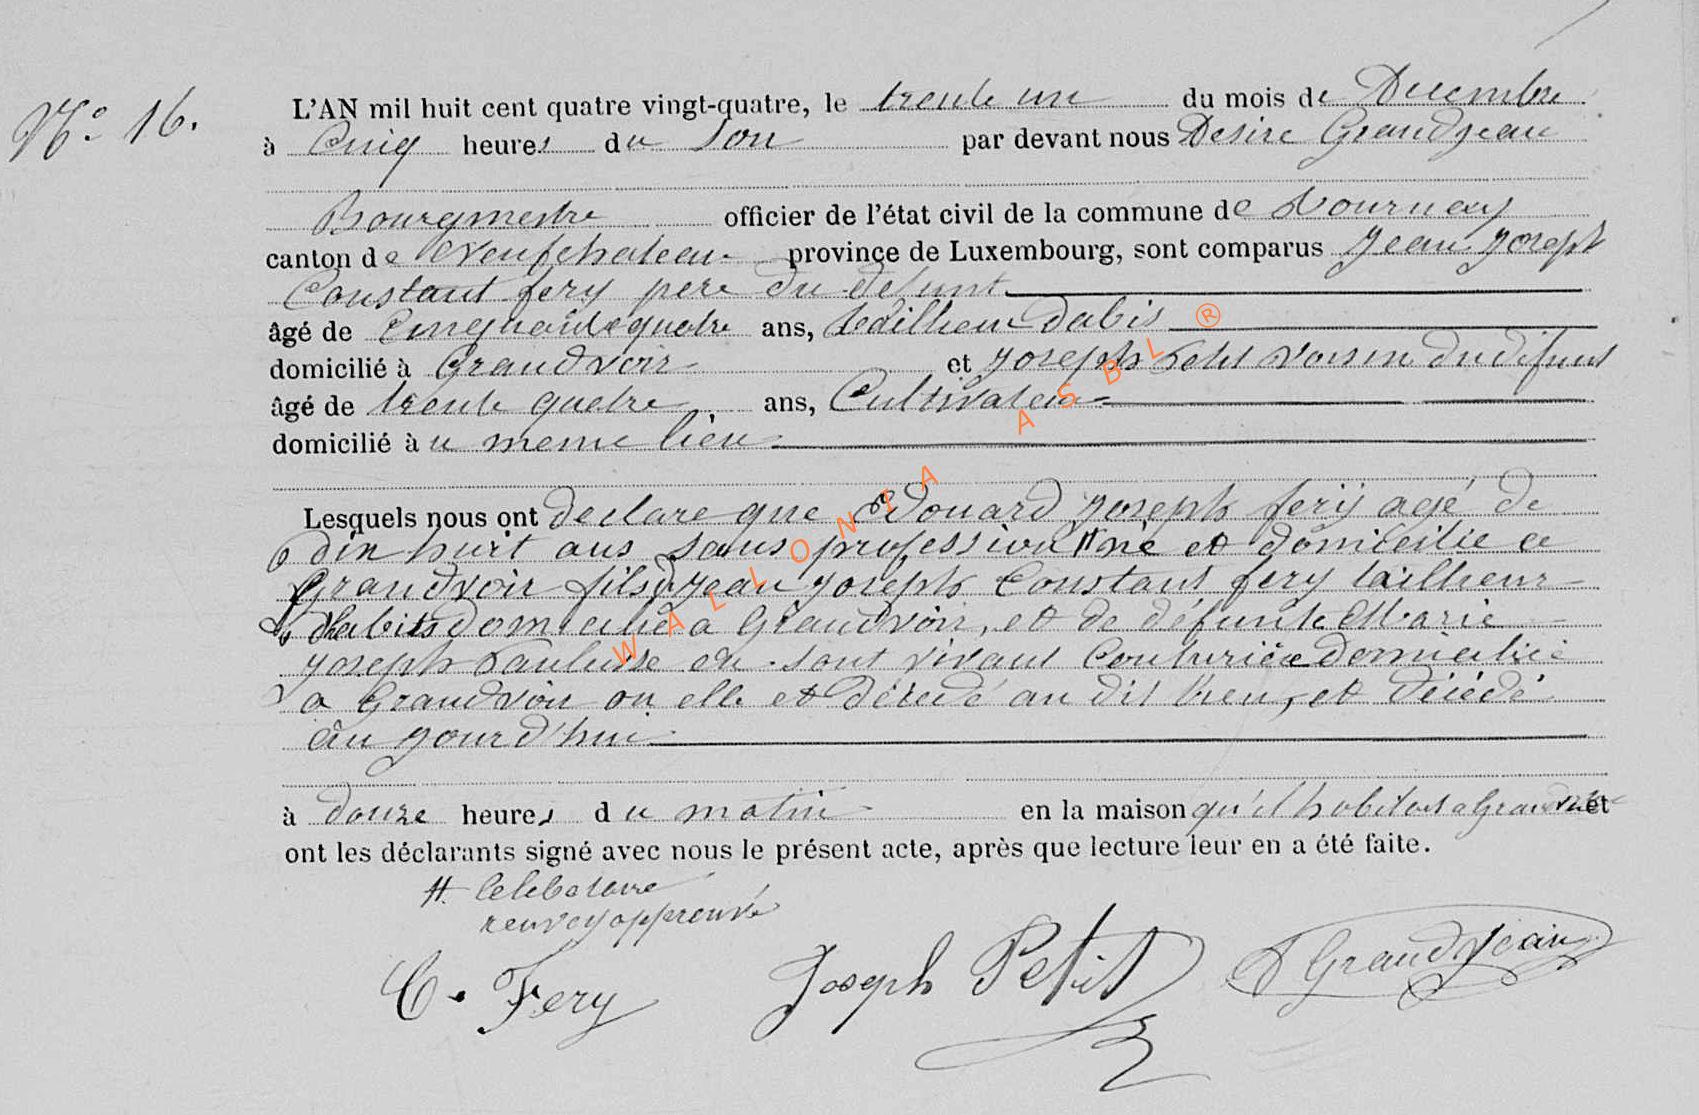 N° 16.
L'AN mil huit cent quatre vingt-quatre, le trente un du mois de Decembre
à Cinq heures du Soir par devant nous Desire Grandjean
Bourgmestre officier de l'état civil de la commune de Tournay
canton de Neufchateau province de Luxembourg, sont comparus Jean Joseph
Constant fery pere du defunt
âgé de Cinquante quatre ans, tailleur dabis
domicilié à Grandvoir et Joseph Petit voisin du difunt
âgé de trente quatre ans, Cultivateur
domicilié à u meme lieu
Lesquels nous ont declare que Edouard Joseph fery agé de
dix huit ans sans profession # né et domicilie a
Grandvoir fils d Jean Joseph Constant fery tailleur
d'habits domicilié a Grandvoir, et de défunte Marie
Joseph en sont vivant Couturière domicilié
a Grandvoir ou elle et décédé au dit lieu, et décédé
au jourd'hui
à douze heures du matin en la maison qu'il habitait a Grandvoir et
ont les déclarants signé avec nous le présent acte, après que lecture leur en a été faite.
# Celebataire
renvoy approuvé
C. Fery Joseph Petit D Grandjean
WALLONIA ASBL ®